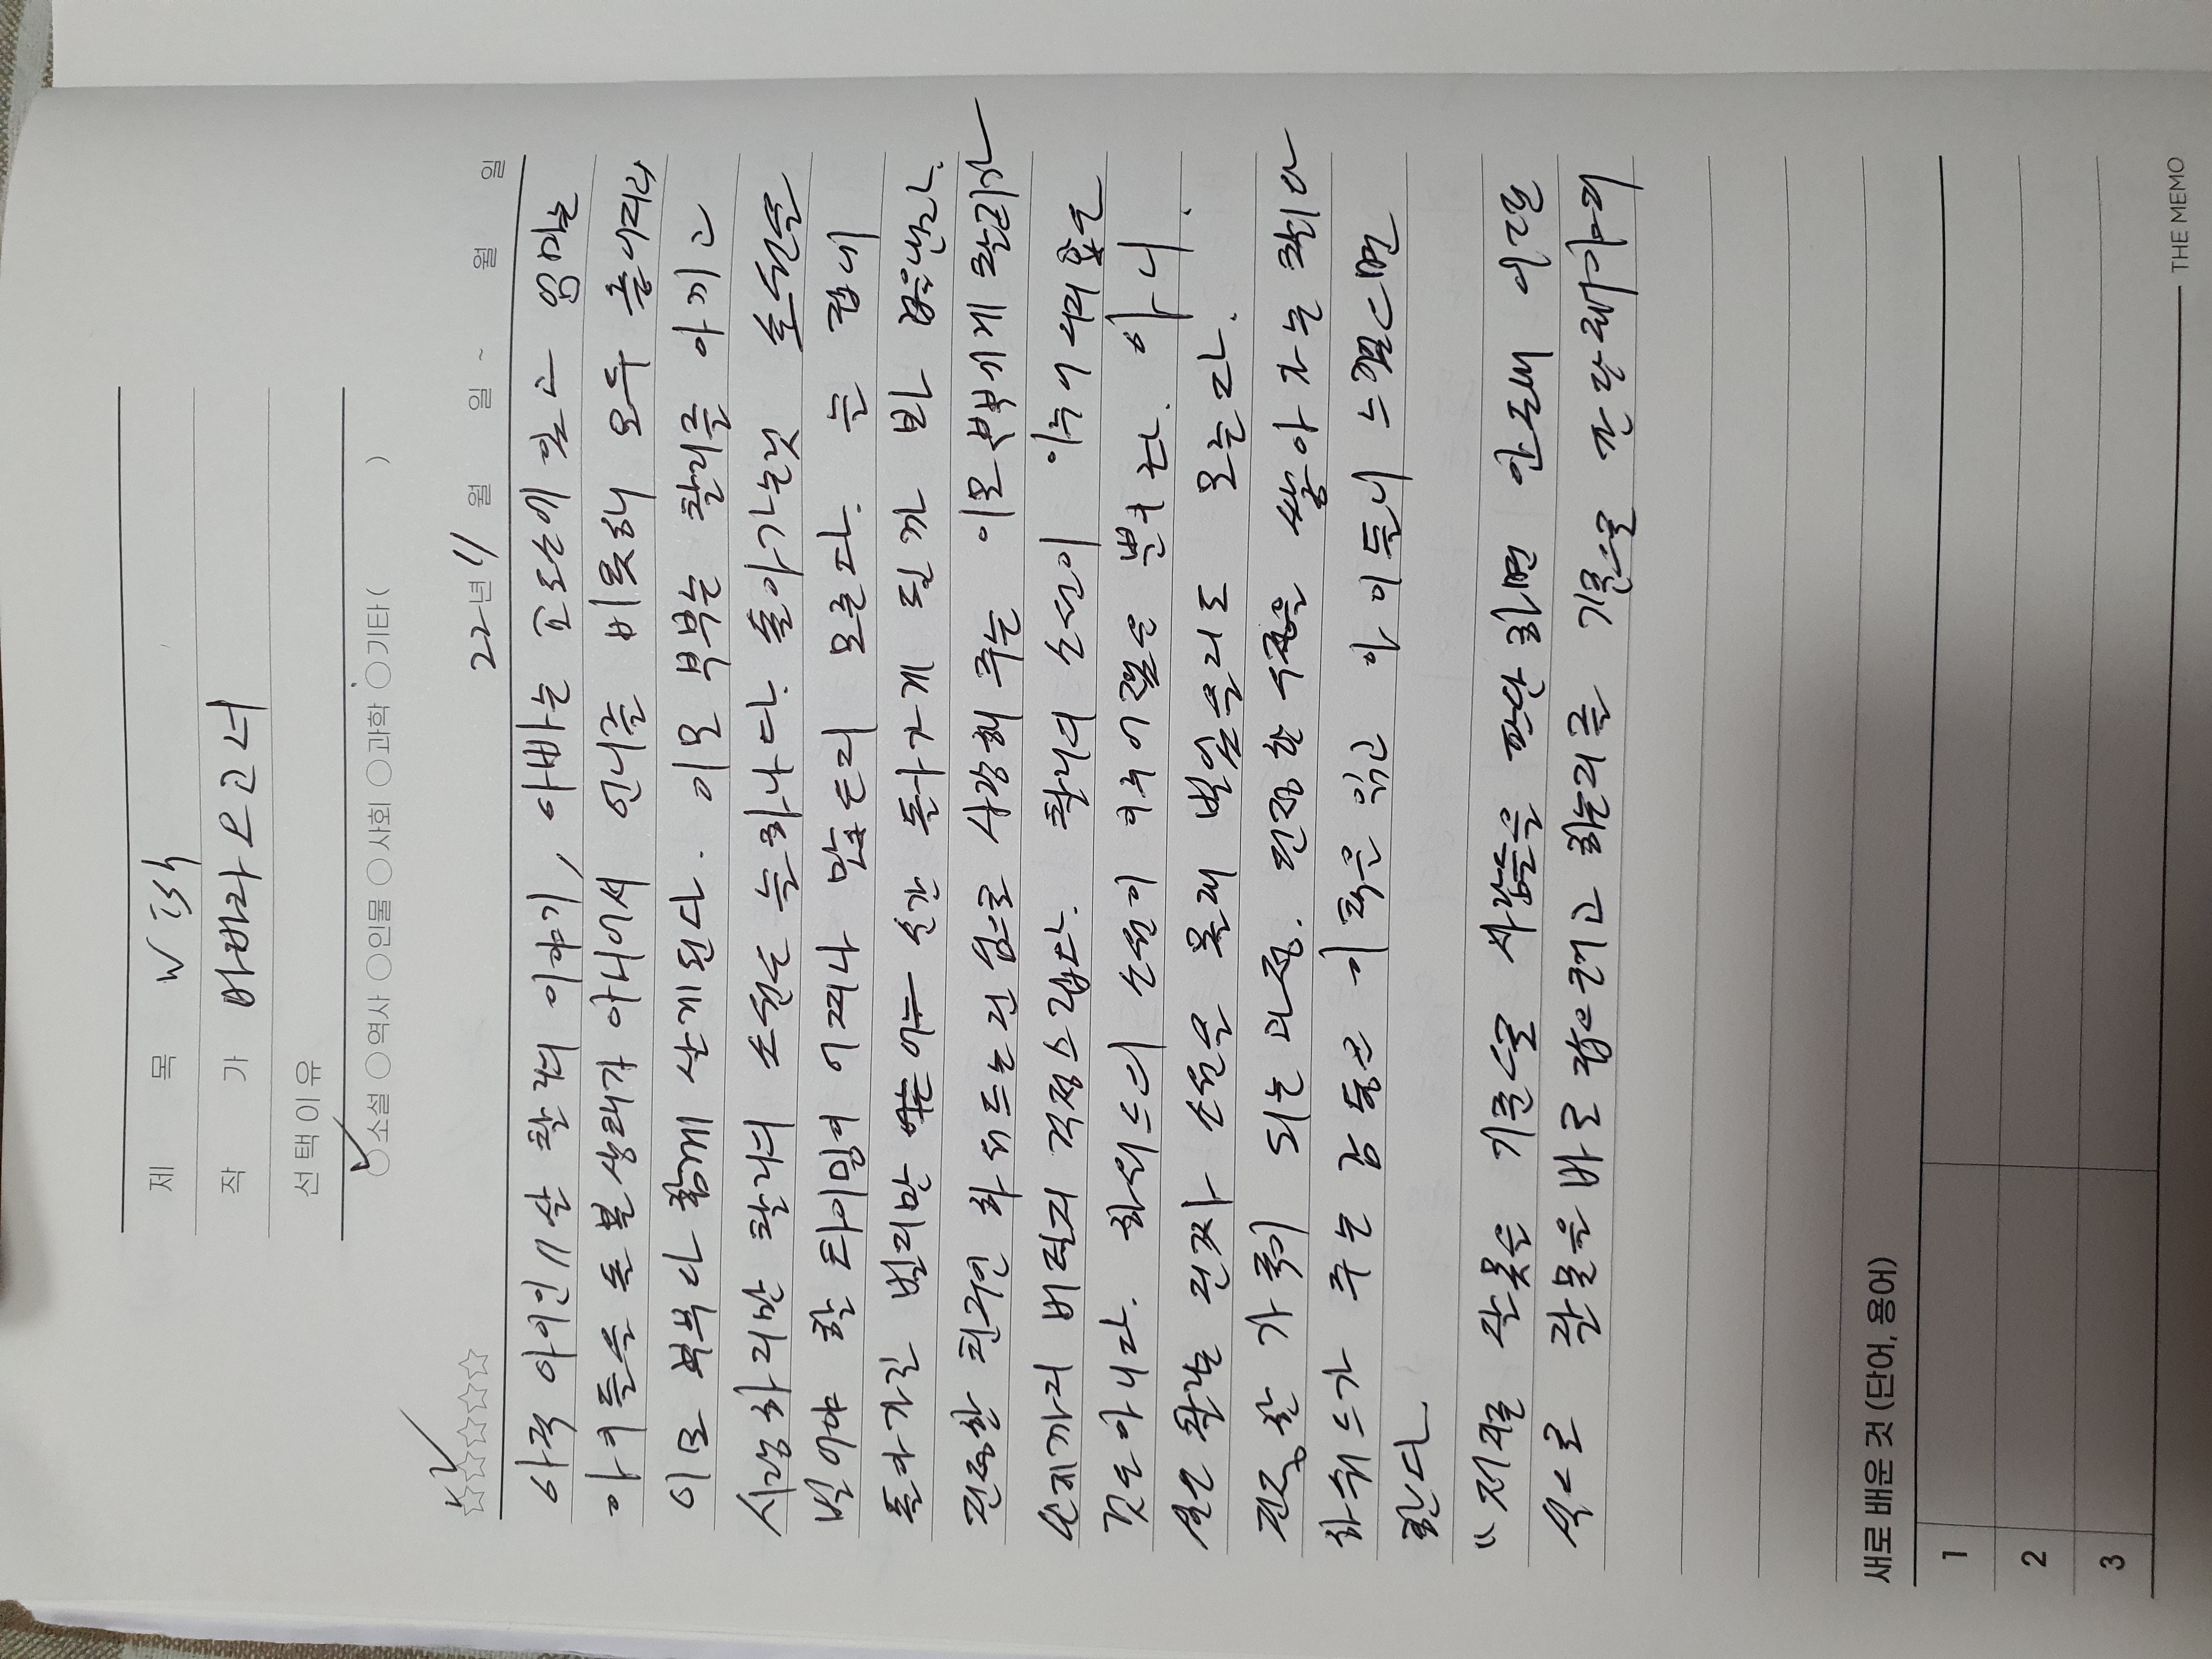 제 목 Wish
작 가 바바라 오코너
선택이유
소설 역사 인물 사회 과학 기타 ( )
22년 11월 일 ~ 월 일
아직 아이인 11살 찰리의 이야기, 아빠는 교도소에 있고 엄마는
아이들을 돌볼 상태가 아니어서 언니를 비롯해 모두 흩어지고
이모 부부와 함께 살게된다. 이모 부부는 찰리를 아끼고
사랑하지만 찰리의 소원은 늘 하나다. 돌아가는것 소원을
빌어야 할 타이밍이 어찌나 많은지 모른다. 늘 집에
돌아가길 빌지만 순간 돌아가게 될까 봐 겁을낸다.
진정한 친구인 하워드는 진심으로 사랑해 주는 이모 부부에게 찰리가
언제까지 버틸지 걱정스럽다. 찰리의 소원이 이루어지지 않은
것도 아니다. 하워드의 소원이 이루어졌을 뿐이다. 아니.
실은 찰리는 진짜 소원을 몰래 빌었을지도 모른다.
진정한 가족이 되는 과정. 진정한 우정을 쌓아 가는 찰리와
하워드가 주는 감동을 이 책을 읽고 아이들이 느꼈으면
한다
"저지른 잘못을 기준으로 사람들을 판단하면 안돼 어떤
식으로 잘못을 바로 잡으려고 하는지를 기준으로 판단해야지
새로 배운 것 (단어, 용어)
1
2
3
THE MEMO